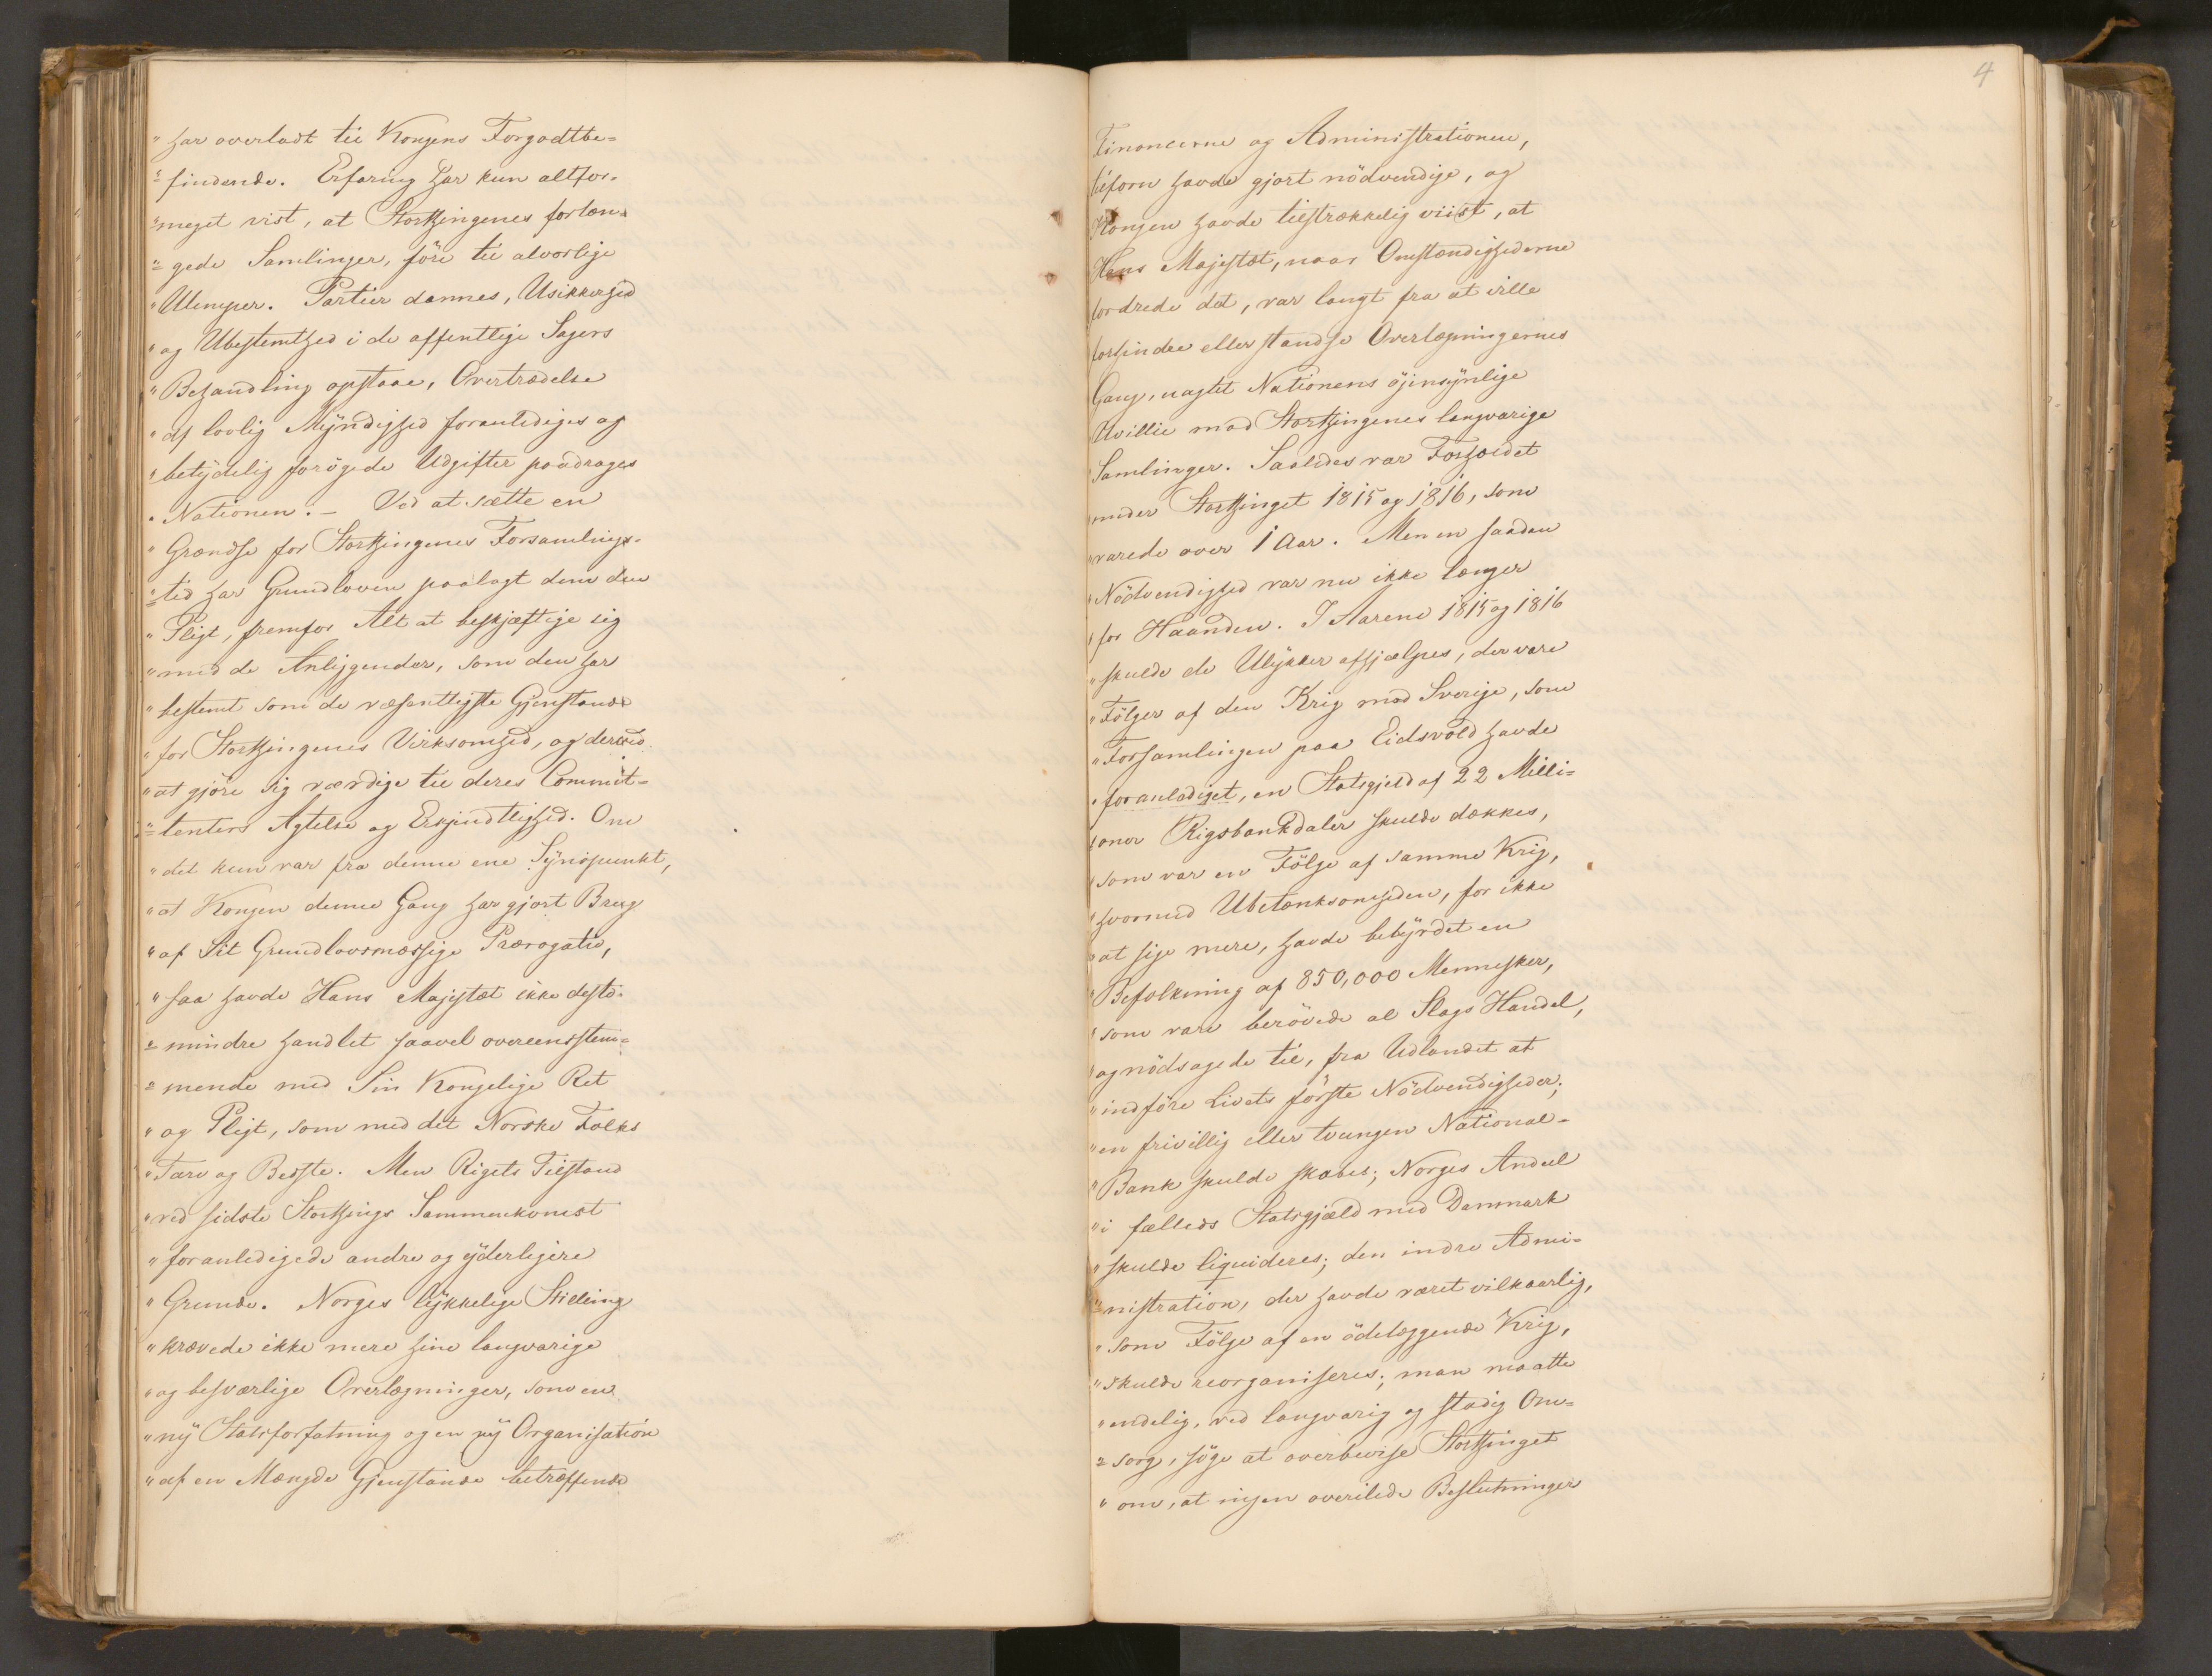 " har overladt til Kongens Forgodtbe-
"= findende. Erfaring har kun altfor-
"= meget vist, at Storthingenes forlæn-
"= gede Samlinger, före til alvorlige
" Ulemper. Partier dannes, Usikkerhed
" og Ubestemthed i de offentlige Sagers
" Behandling opstaae, Overtrædelse
" af lovlig Myndighed foranlediges og
" betydelig forögede Udgifter paadrages
" Nationen. – Ved at sætte en
" Grændse for Storthingenes Forsamlings-
"= tid har Grundloven paalagt dem den
" Pligt, fremfor Alt at beskjæftige sig
" med de Anliggender, som den har
" bestemt som de væsentligste Gjenstande
" for Storthingenes Virksomhed, og derved
" at gjöre sig værdige til deres Commit-
"= tenters Agtelse og Erkjendtlighed. Om
" det kun var fra denne ene Synspunkt,
" at Kongen denne Gang har gjort Brug
" af Sit Grundlovsmæssige Prærogativ,
" saa havde Hans Majestæt ikke desto-
"= mindre handlet saavel overeensstem-
"= mende med Sin Kongelige Ret
" og Pligt, som med det Norske Folks
" Tarv og Bedste. Men Rigets Tilstand
" ved sidste Storthings Sammenkomst
" foranledigede andre og yderligere
" Grunde. Norges lykkelige Stilling
" krævede ikke mere hine langvarige
" og besværlige Overlægninger, som en
" ny Statsforfatning og en ny Organisation
" af en Mængde Gjenstande betræffende
4
Financerne og Administrationen,
tilforn havde gjort nödvendige, og
Kongen havde tilstrækkelig viist, at
Hans Majestæt, naar Omstændighederne
fordrede det, var langt fra at ville
forhindre eller standse Overlægningernes
Gang, uagtet Nationens öjensynlige
Uvillie mod Storthingenes langvarige
Samlinger. Saaledes var Forholdet
under Storthinget 1815 og 1816, som
" varede over 1 Aar. Men en saadan
" Nödvendighed var nu ikke længer
" for Haanden. I Aarene 1815 og 1816
" skulde de Ulykker afhjælpes, der vare
" Fölger af den Krig mod Sverige, som
" Forsamlingen paa Eidsvold havde
" foranlediget, en Statsgjeld af 22 Milli-
" oner Rigsbankdaler skulde dækkes,
" som var en Fölge af samme Krig,
" hvormed Ubetænksomheden, for ikke
" at sige mere, havde bebyrdet en
" Befolkning af 850,000 Mennesker,
" som vare berövede al Slags Handel,
" og nödsagede til, fra Udlandet at
" indföre Livets förste Nödvendigheder;
" en frivillig eller tvungen National-
" Bank skulde skabes; Norges Andeel
" i fælleds Statsgjæld med Danmark
" skulde liquideres; den indre Admi-
"= nistration, der havde været vilkaarlig,
" som Fölge af en ödelæggende Krig,
" skulde reorganiseres; man maatte
" endelig, ved langvarig og stadig Om-
"= sorg, söge at overbevise Storthinget
" om, at ingen overilede Beslutninger